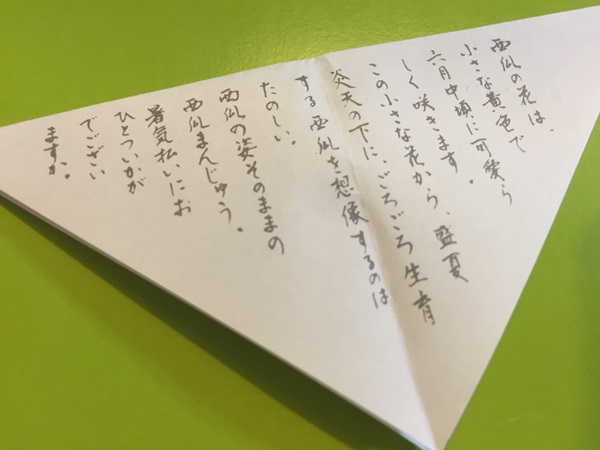 西瓜の花は、
小さな黄色で
六月中頃に可愛ら
しく咲きます。
この小さな花から、盛夏
炎天の下に、ごろごろ生育
する西瓜を想像するのは
たのしい。
西瓜の姿そのままの
西瓜まんじゅう。
暑気払いにお
ひとついかが
でござい
ますか。